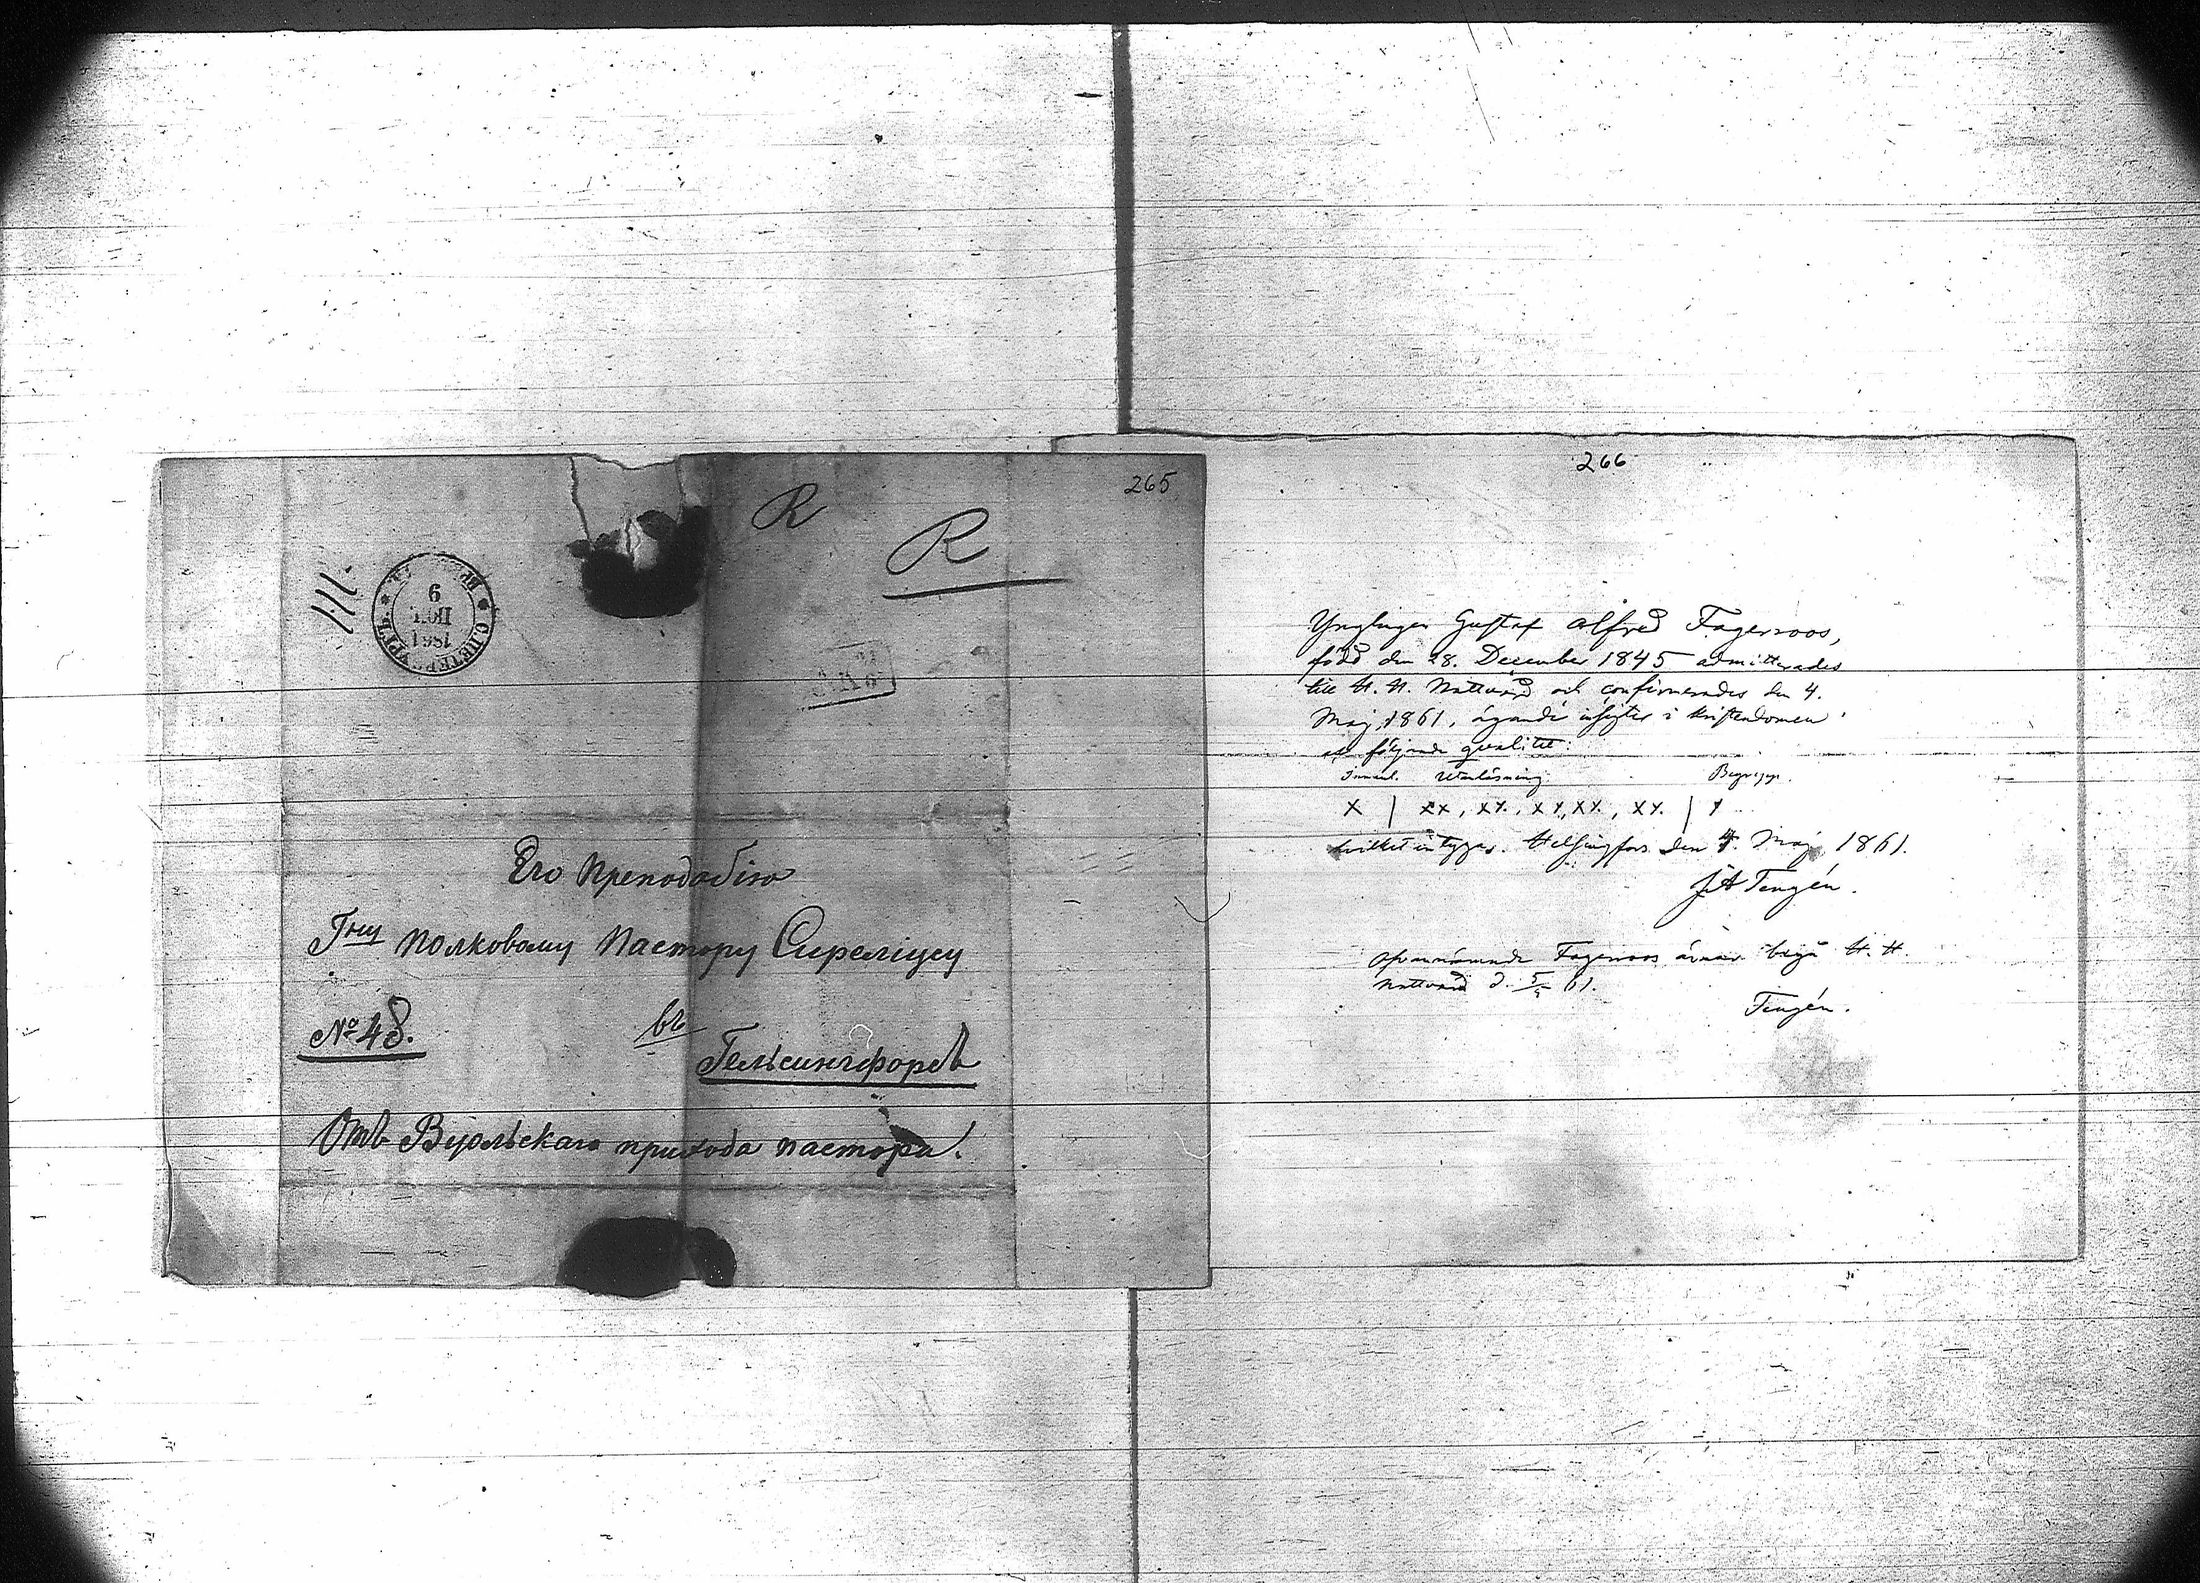 265
R
R
111.
С.ПЕТЕРБУРГЪ
9
1861
Его Преподобію
Гну Полковому Пастору Сирелиусу
№ 48.
въ
Гельсингфорсъ
Отъ Вуольскаго прихода пастора.
266
Ynglingen Gustaf Alfred Fagerroos,
född den 28. December 1845 admitterades
till H. H. Nattvard och confirmerades den 4.
Maj 1861, ägande insigter i kristendomen
af följande qvalitet:
Innanl. Utanläsning Begrepp.
X | XX, XX, XX, XX, XX. | X
hvilket intygas. Helsingfors den 4. Maj 1861.
JA Tengén.
Ofvannämnde Fagerroos ärnar begå H. H.
Nattvard d. 5/5 61.
Tengén.